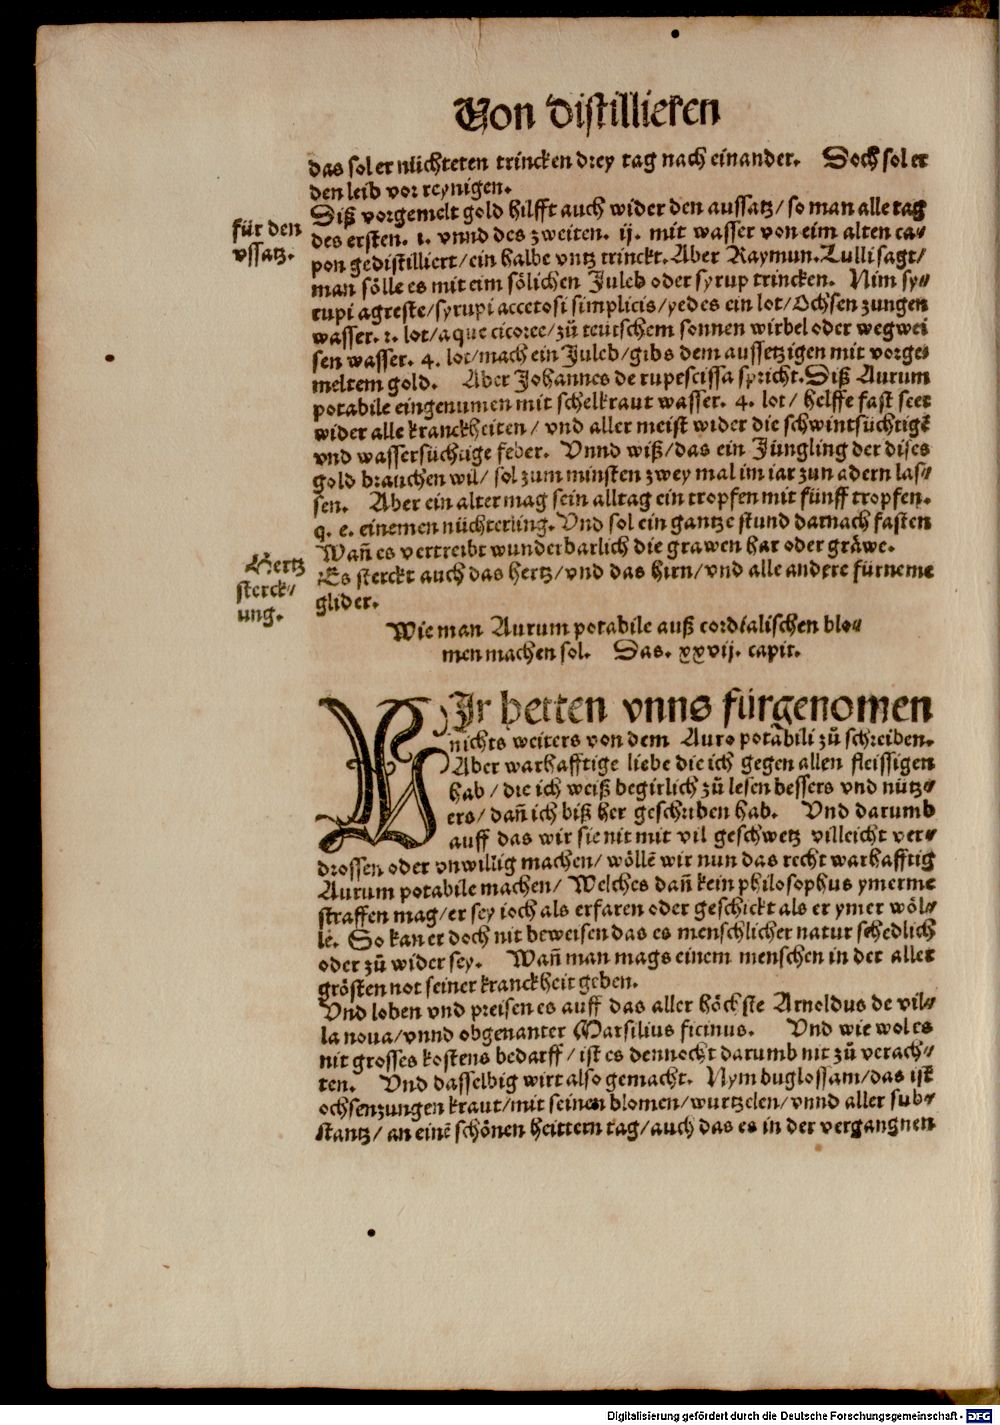 Von distillieren
das sol er nüchteren trincken drey tag nach einander. Doch sol er
den leib vor reynigen.
für den
vssatz.
Diß vorgemelt gold hilfft auch wider den aussatz/ so man alle tag
des ersten. i. vnnd des zweiten. ij. mit wasser von eim alten ca⸗
pon gedistilliert/ ein halbe vntz trinckt. Aber Raymun. Lulli sagt/
man sölle es mit eim sölichen Juleb oder syrup trincken. Nim sy⸗
rupi agreste/ syrupi accetosi simplicis/ yedes ein lot/ Ochsen zungen
wasser. 2. lot/ aque cicoree/ zů teutschem sonnen wirbel oder wegwei
sen wasser. 4. lot/ mach ein Juleb/ gibs dem aussetzigen mit vorge⸗
meltem gold. Aber Johannes de rupescissa spricht. Diß Aurum
potabile eingenumen mit schelkraut wasser. 4. lot/ helffe fast seer
wider alle kranckheiten/ vnd aller meist wider die schwintsüchtigē
vnd wassersüchtige feber. Vnnd wiß/ das ein Jüngling der dises
gold brauchen wil/ sol zum minsten zwey mal im iar zun adern las⸗
sen. Aber ein alter mag sein alltag ein tropfen mit fünff tropfen.
q. e. einemen nüchterling. Vnd sol ein gantze stund darnach fasten
Wañ es vertreibt wunderbarlich die grawen har oder gräwe.
Hertz
sterck/
ung.
Es sterckt auch das hertz/ vnd das hirn/ vnd alle andere fürneme
glider.
Wie man Aurum potabile auß cordialischen blo⸗
men machen sol. Das. xxvij. capit.
WIr hetten vnns fürgenomen
nichts weiters von dem Auro potabili zů schreiben.
Aber warhafftige liebe die ich gegen allen fleissigen
hab/ die ich weiß begirlich zů lesen bessers vnd nütz⸗
ers/ dañ ich biß her geschriben hab. Vnd darumb
auff das wir sie nit mit vil geschwetz villeicht ver⸗
drossen oder vnwillig machen/ wöllē wir nun das recht warhafftig
Aurum potabile machen/ Welches dañ kein philosophus ymerme
straffen mag/ er sey ioch als erfaren oder geschickt als er ymer wöl⸗
lē. So kan er doch nit beweisen das es menschlicher natur schedlich
oder zů wider sey. Wañ man mags einem menschen in der aller
grösten not seiner kranckheit geben.
Vnd loben vnd preisen es auff das aller höchste Arnoldus de vil⸗
la noua/ vnnd obgenanter Marsilius ficinus. Vnd wie wol es
nit grosses kostens bedarff/ ist es dennocht darumb nit zů verach⸗
ten. Vnd dasselbig wirt also gemacht. Nym buglossam/ das ist
ochsenzungen kraut/ mit seinen blomen/ wurtzelen/ vnnd aller sub⸗
stantz/ an einē schönen heittern tag/ auch das es in der vergangnen
Digitalisierung gefördert durch die Deutsche Forschungsgemeinschaft - DFG